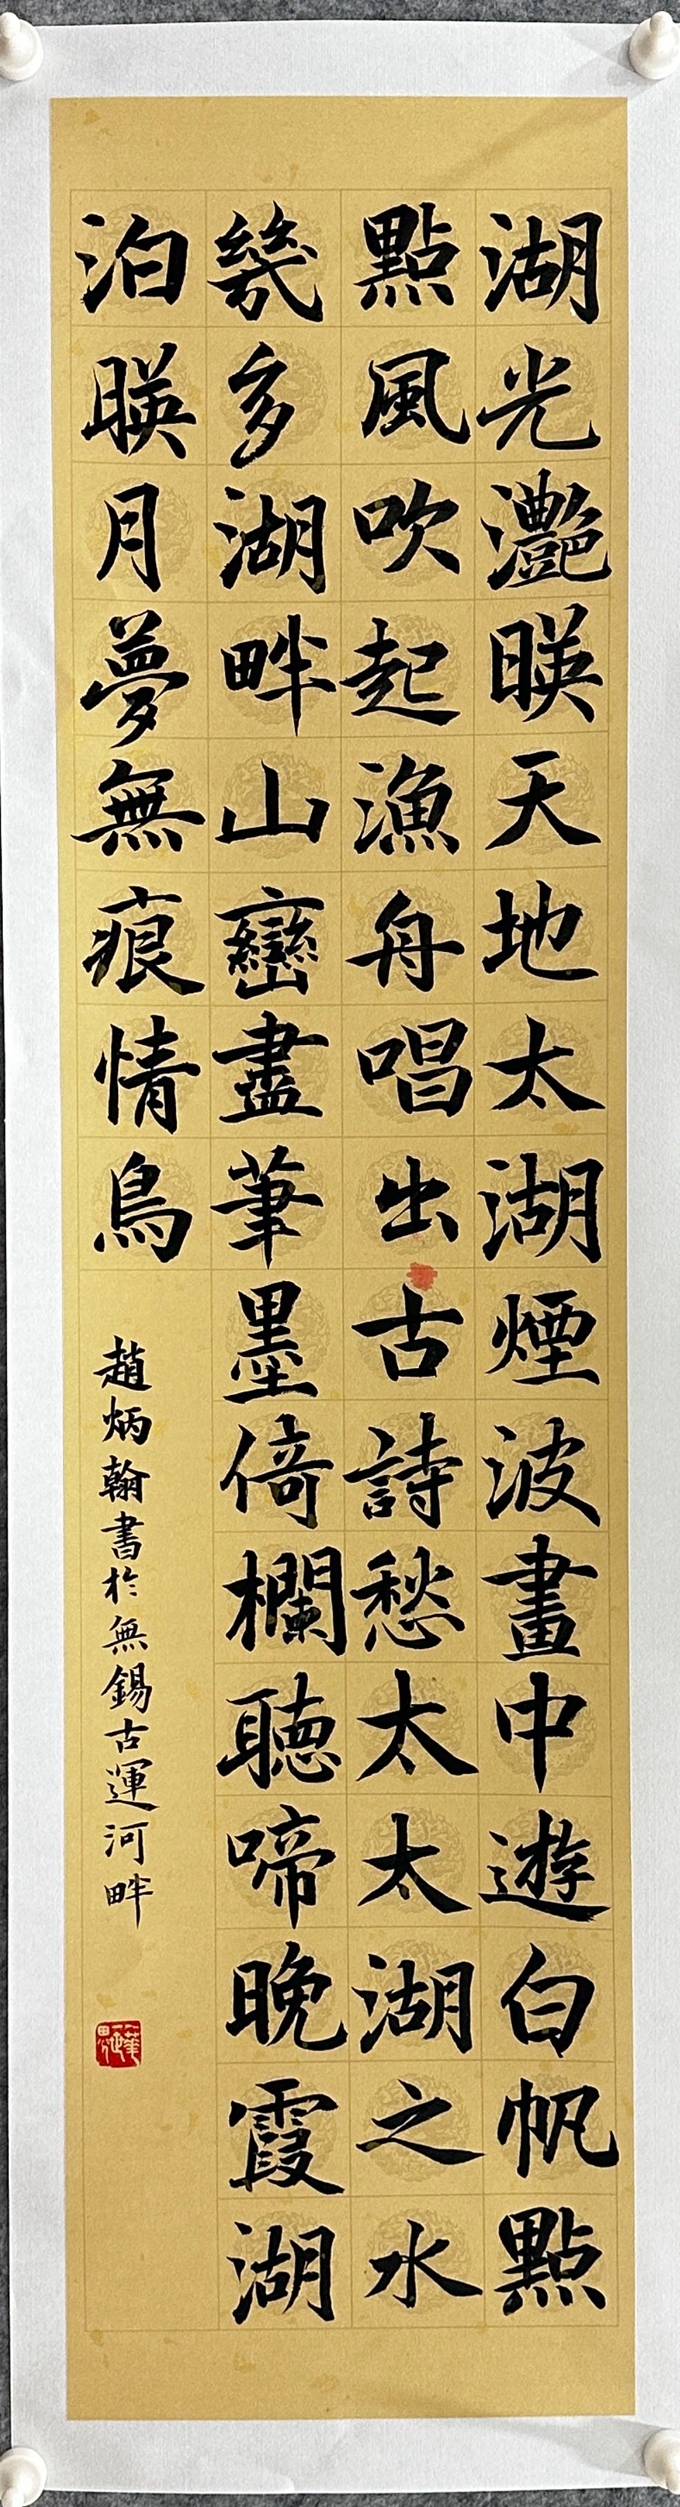 湖光灩暎天地太湖煙波畫中遊白帆點
點風吹起漁舟唱出古詩愁太太湖之水
幾多湖畔山巒盡筆墨倚欄聽啼晚霞湖
泊暎月夢無痕情鳥
趙炳翰書於無錫古運河畔